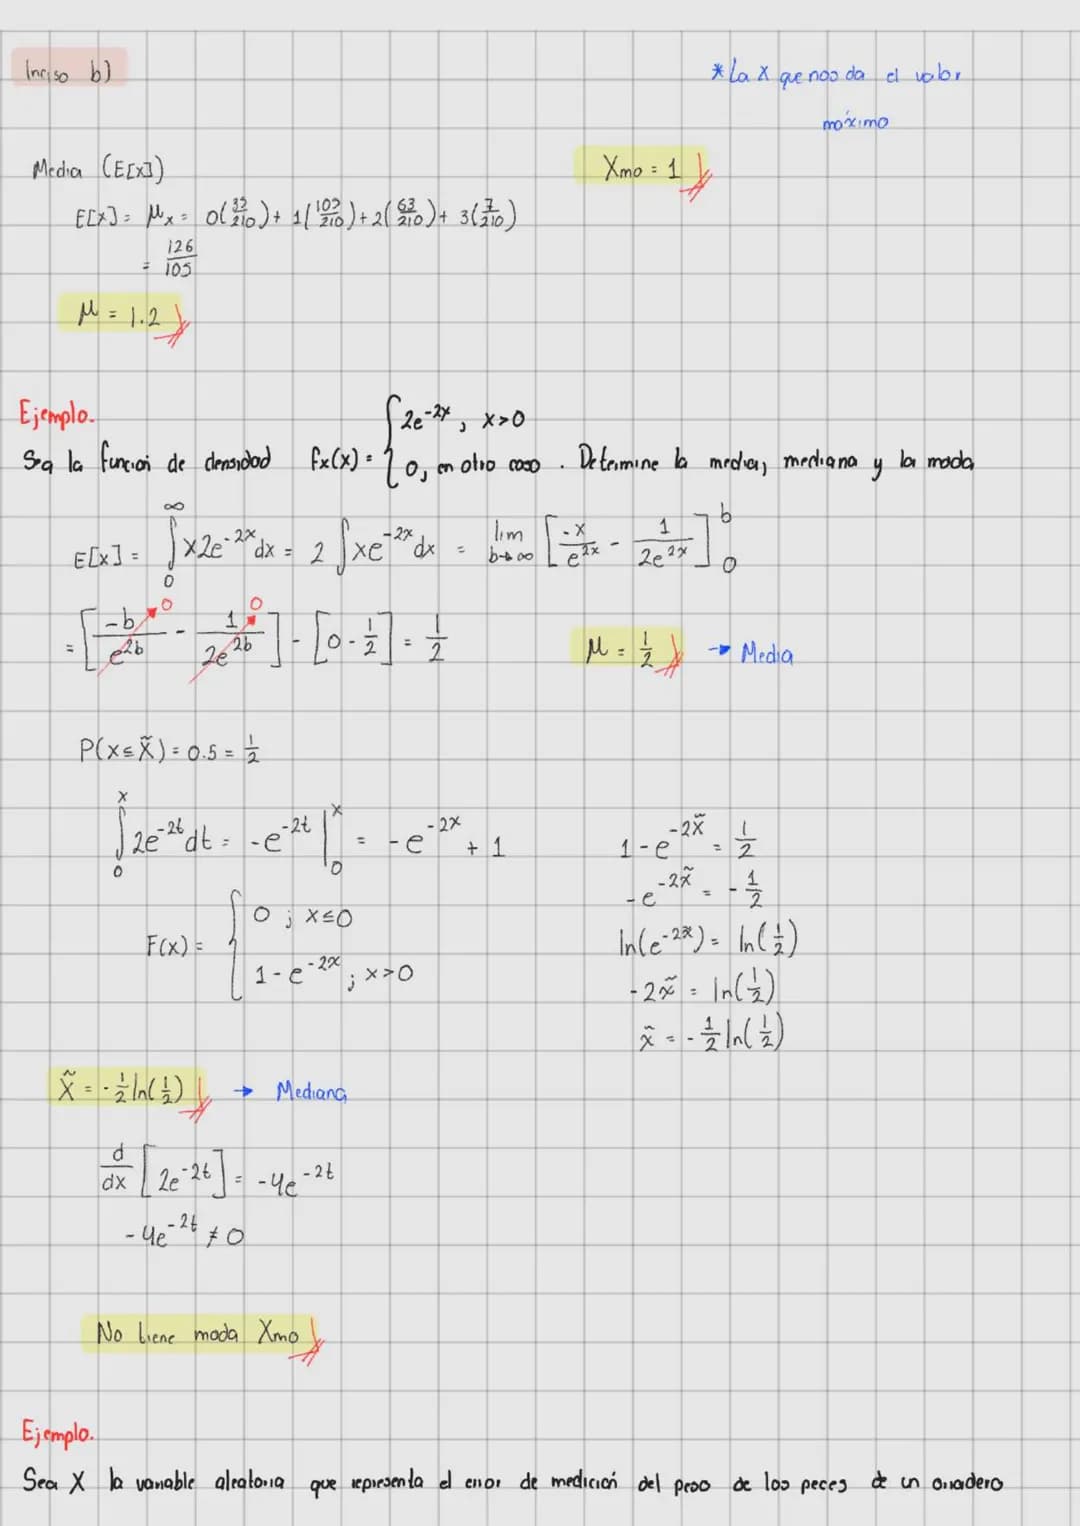 Inciso b)
*La X que nos da el valor
máximo
Media (E[x])
Xmo = 1
E[x] = μx = 0(32/210) + 1(109/210) + 2(63/210) + 3(7/210)
= 126/105
μ = 1.2
Ejemplo.
Sea la función de densidad fx(x) = { 2e^-2x, x>0
0, en otro caso . Determine la media, mediana y la moda
E[x] = ∫₀^∞ x2e^-2x dx = 2 ∫xe^-2x dx = lim b→∞ [-x/e^2x - 1/2e^2x]₀^b
= [-b/e^2b →0 - 1/2e^2b →0] - [0 - 1/2] = 1/2
μ = 1/2 → Media
P(x≤x̃) = 0.5 = 1/2
∫₀^x 2e^-2t dt = -e^-2t |₀^x = -e^-2x + 1
F(x) = { 0 ; x≤0
1-e^-2x ; x>0
1-e^-2x̃ = 1/2
-e^-2x̃ = -1/2
ln(e^-2x̃) = ln(1/2)
-2x̃ = ln(1/2)
x̃ = -1/2 ln(1/2)
x̃ = -1/2 ln(1/2) → Mediana
d/dx [2e^-2t] = -4e^-2t
-4e^-2t ≠ 0
No tiene moda Xmo
Ejemplo.
Sea X la variable aleatoria que representa el error de medición del peso de los peces de un criadero